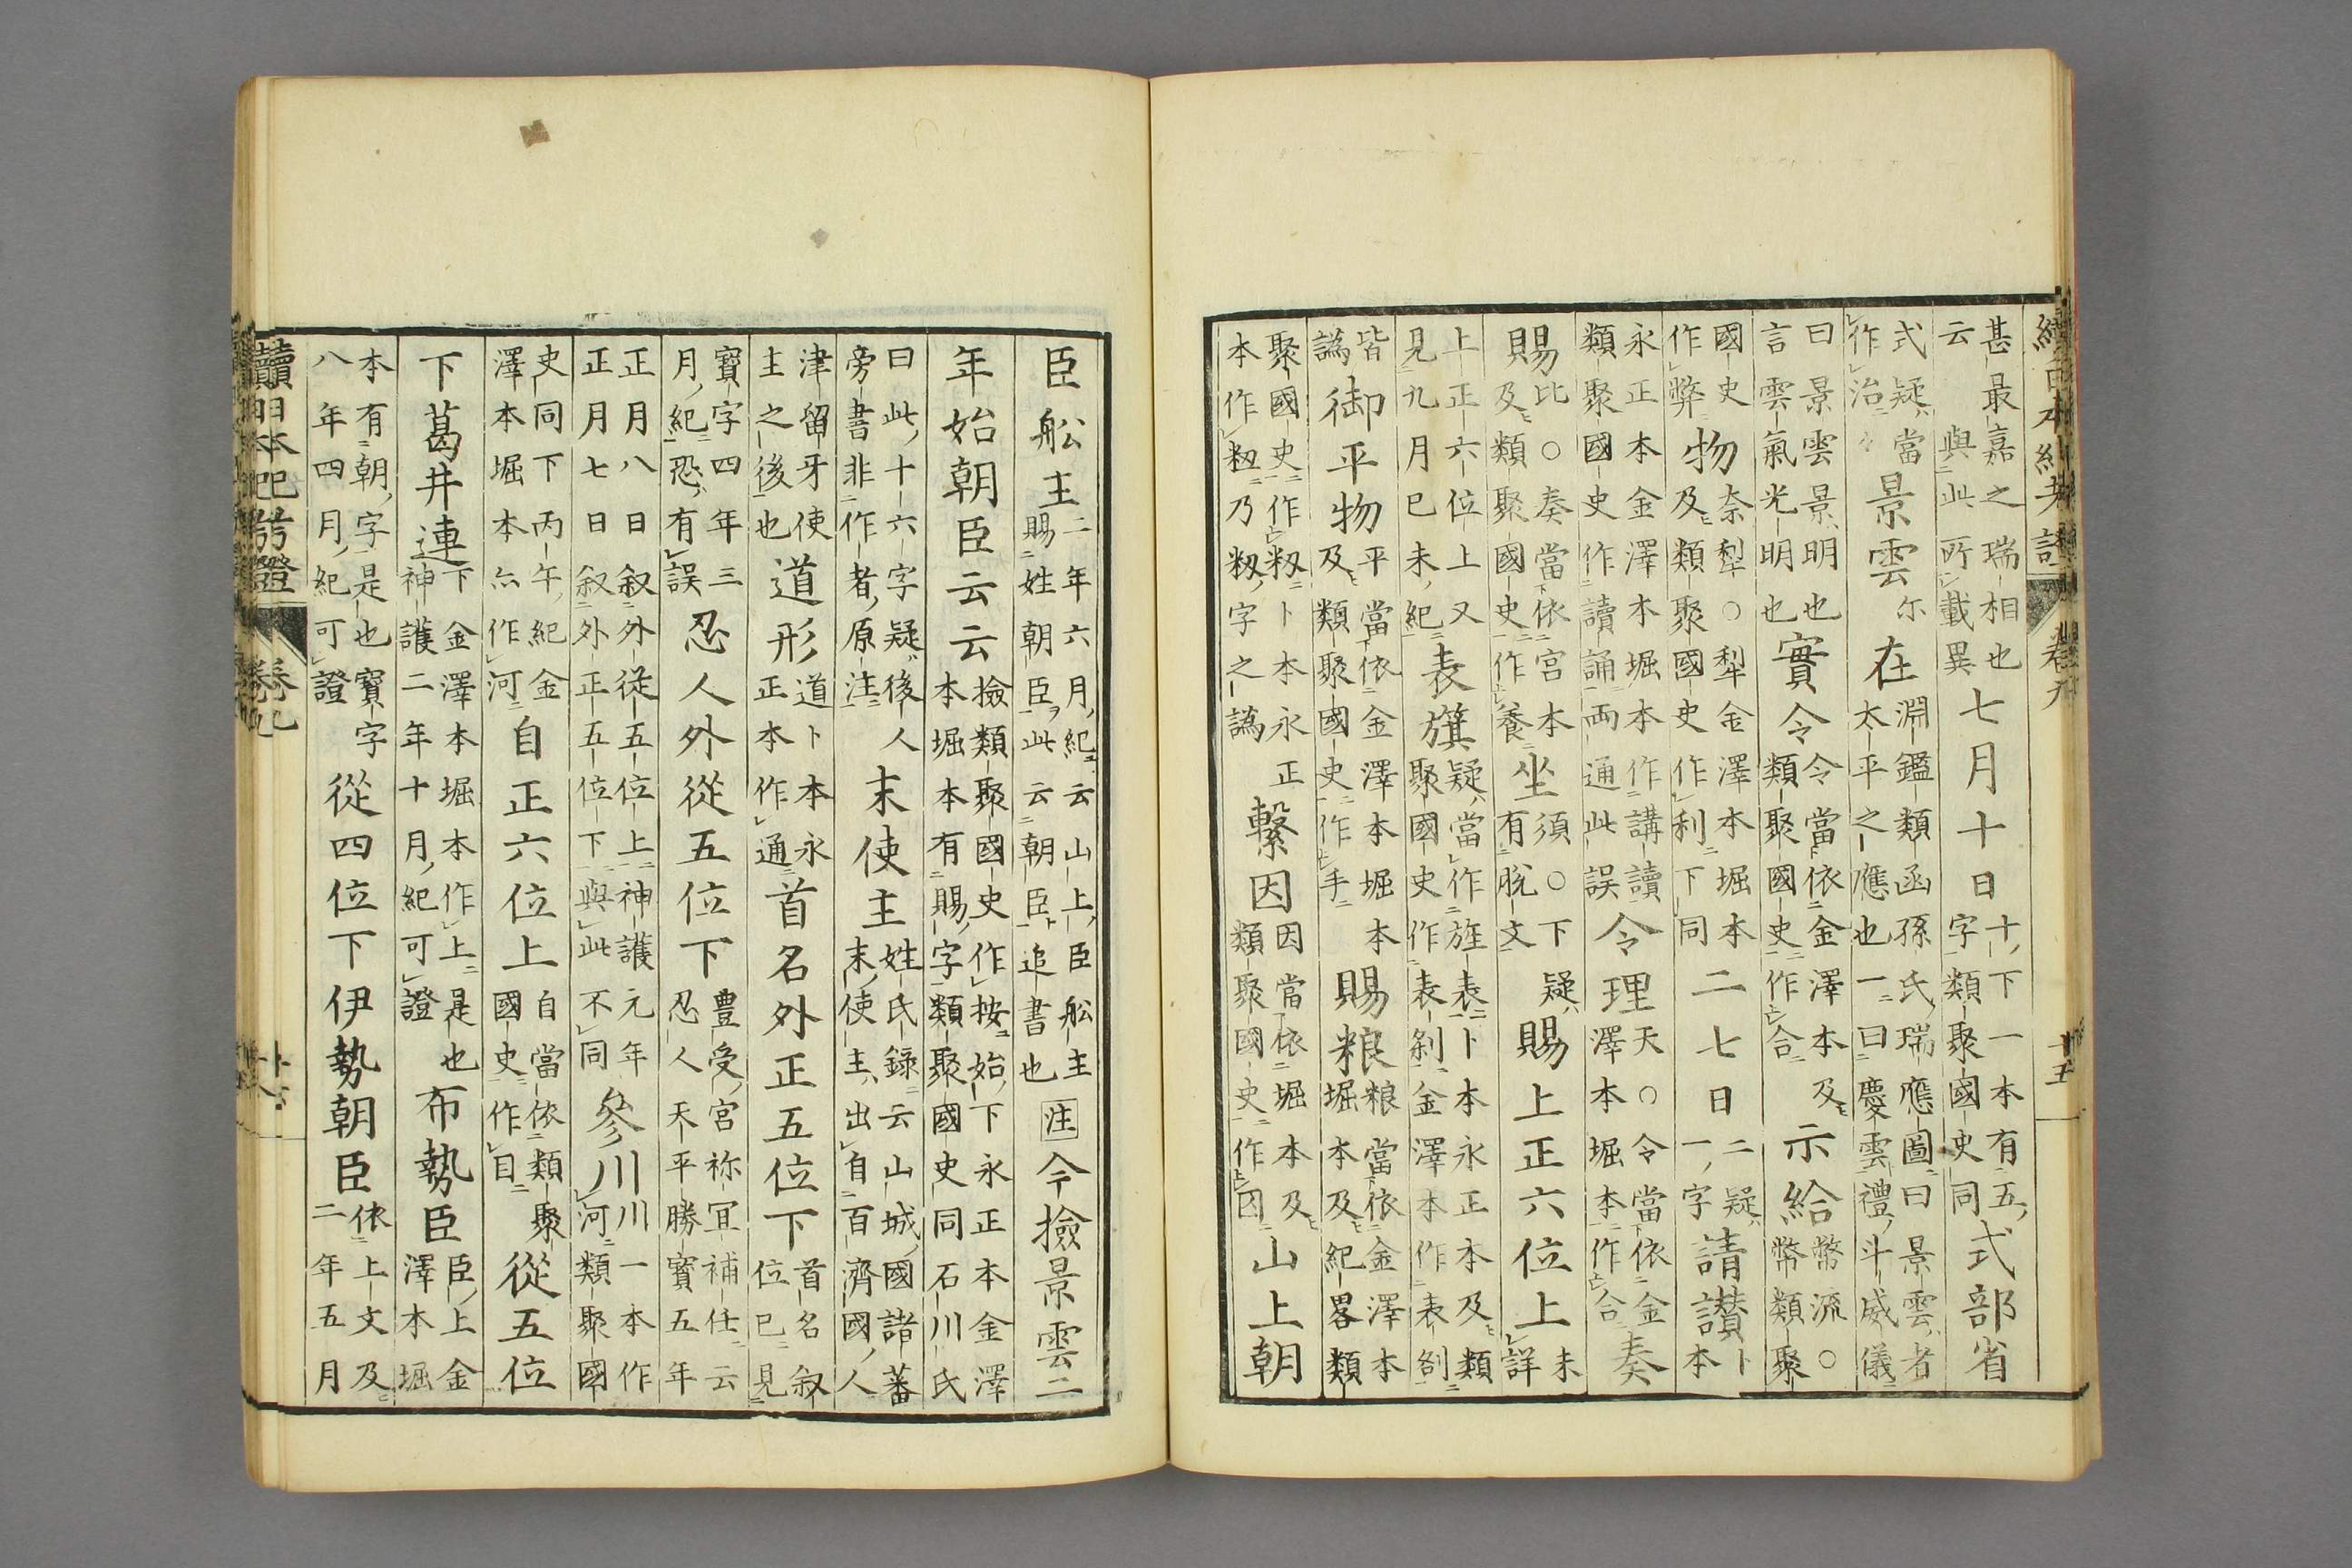 續日本紀考證 卷九 十五
甚最嘉之瑞相也云與此所載異七月十日十下一本有五字類聚國史同式部省
式疑當作治景雲尓在淵鑑類函孫氏瑞應圖曰景雲者太平之應也一曰慶雲禮斗威儀
曰景雲景明也言雲氣光明也實令令當依金澤本及類聚國史作合示給幣流○幣類聚
國史作弊物奈犁○犁金澤本堀本及類聚國史作利下同二七日二疑一字請讃卜本
永正本金澤本堀本作講讀類聚國史作讀誦両通此誤令理天○令當依金澤本堀本作合奏
賜比○奏當依宮本及類聚國史作養坐須○下疑有脫文賜上正六位上未詳
上正六位上又見九月巳未紀表旗疑當作旌表卜本永正本及類聚國史作表剎金澤本作表刹
皆譌御平物平當依金澤本堀本及類聚國史作手賜粮粮當依金澤本堀本及紀畧類
聚國史作籾卜本永正本作籾乃籾字之譌繋因因當依堀本及類聚國史作囚山上朝
臣舩主二年六月紀云山上臣舩主賜姓朝臣此云朝臣追書也注今撿景雲二
年始朝臣云云撿類聚國史作按始下永正本金澤本堀本有賜字類聚國史同石川氏
曰此十六字疑後人旁書非作者原注末使主姓氏録云山城國諸蕃末使主出自百濟國人
津留牙使主之後也道形道卜本永正本作通首名外正五位下首名叙位已見
寶字四年三月紀恐有誤忍人外從五位下豊受宮祢冝補任云忍人天平勝寶五年
正月八日叙外從五位上神護元年正月七日叙外正五位下與此不同參川川一本作河類聚國
史同下丙午紀金澤本堀本亦作河自正六位上自當依類聚國史作目從五位
下葛井連下金澤本堀本作上是也神護二年十月紀可證布勢臣臣上金澤本堀
本有朝字是也寶字八年四月紀可證從四位下伊勢朝臣依上文及二年五月
續日本紀考證 卷九